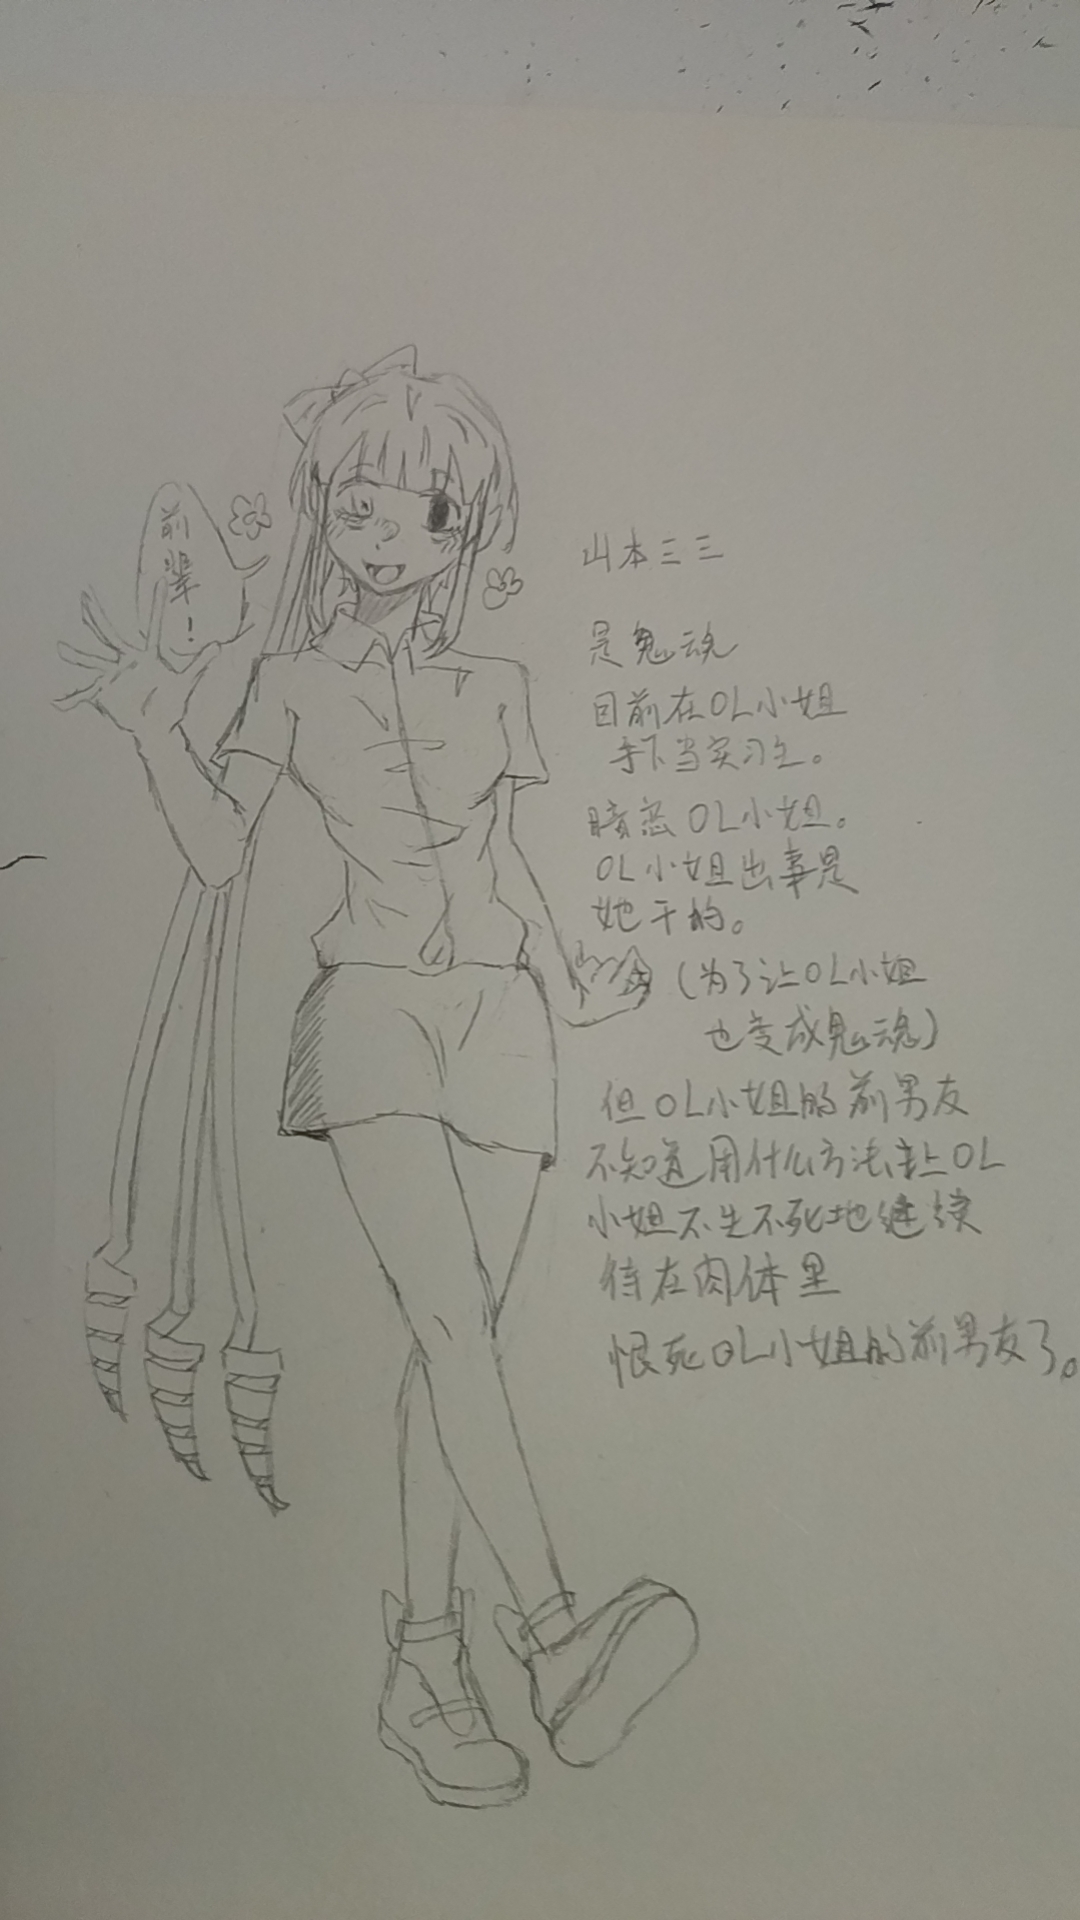 前
辈
!
山本三三
是鬼魂
目前在OL小姐
手下当实习生。
暗恋OL小姐。
OL小姐出事是
她干的。
(为了让OL小姐
也变成鬼魂)
但OL小姐的前男友
不知道用什么方法让OL
小姐不生不死地继续
待在肉体里
恨死OL小姐的前男友了。